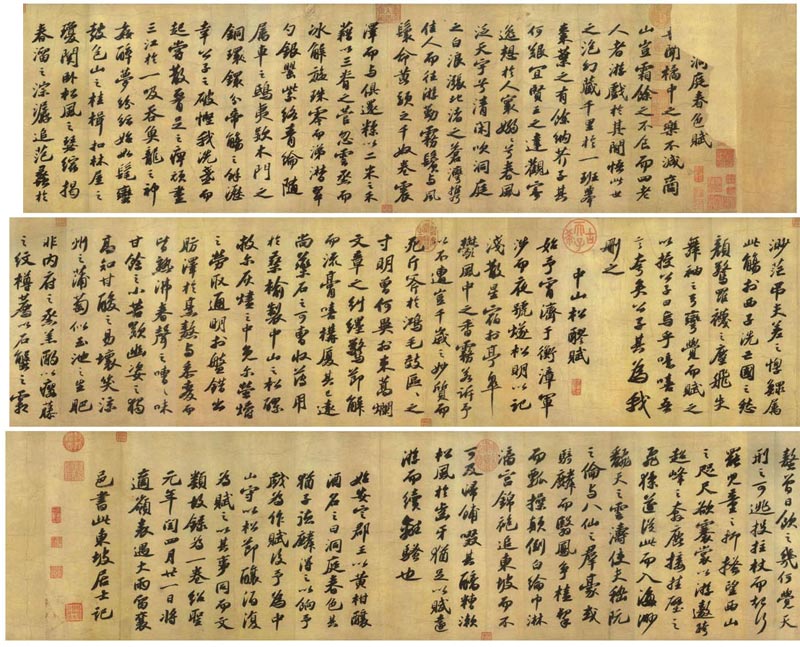 洞庭春色賦
聞橘中之樂不減商
山豈霜餘之不食而四老
人者游戲於其間悟此世
之泡幻藏千里於一班舉
棗葉之有餘納芥子其
何艱宜賢王之達觀寄
逸想於人寰嫋嫋兮春風
泛天宇兮清閑吹洞庭
之白浪漲北渚之蒼灣攜
佳人而往游勤霧鬢與風
鬟命黃頭之千奴卷震
澤而與俱還糅以二米之禾
藉以三脊之菅忽雲烝而
冰解旋珠零而涕潸翠
勺銀罌紫絡青綸隨
屬車之鴟夷款木門之
銅鐶分帝觴之餘瀝
幸公子之破慳我洗盞而
起嘗散腰足之痹頑盡
三江於一吸吞魚龍之神
姦醉夢紛紜始如髦蠻
鼓包山之桂楫扣林屋之
瓊關臥松風之瑟縮揭
春溜之淙潺追范蠡於
渺茫弔夫差之惸鰥屬
此觴於西子洗亡國之愁
顏驚羅襪之塵飛失
舞袖之弓彎覺而賦之
以授公子曰烏乎噫嘻吾
言夸矣公子其為我
刪之
中山松醪賦
始予宵濟於衡漳軍
涉而夜號燧松明以記
淺散星宿於亭皋
鬱風中之香霧若訴予
以不遭豈千歲之妙質而
死斤斧於鴻毛效區區之
寸明曾何異於束蒿爛
文章之糾纆驚節解
而流膏嘻構廈其已遠
尚藥石之可曹收薄用
於桑榆製中山之松醪
救爾灰燼之中免爾螢爝
之勞取通明於盤錯出
肪澤於烹熬與黍麥而
皆熟沸舂聲之嘈嘈味
甘餘之小苦歎幽姿之獨
高知甘酸之易壞笑涼
州之蒲萄似玉池之生肥
非內府之烝羔酌以癭藤
之紋樽薦以石蟹之霜
螯曾日飲之幾何覺天
刑之可逃投拄杖而起行
罷兒童之抑搔望西山
之咫尺欲褰裳以游遨跨
超峰之奔鹿接挂壁之
飛猱遂從此而入海渺
翻天之雲濤使夫嵇阮
之倫與八仙之群豪或
騎麟而翳鳳爭榼挈
而瓢操顛倒白綸巾淋
漓宮錦袍追東坡而不
可及歸餔歠其醨糟漱
松風於齒牙猶足以賦遠
游而續離騷也
始安定郡王以黃柑釀
酒名之曰洞庭春色其
猶子德麟得之以餉予
戲為作賦後予為中
山守以松節釀酒復
為賦之以其事同而文
類故錄為一卷紹聖
元年閏四月廿一日將
適嶺表遇大雨留襄
邑書此東坡居士記